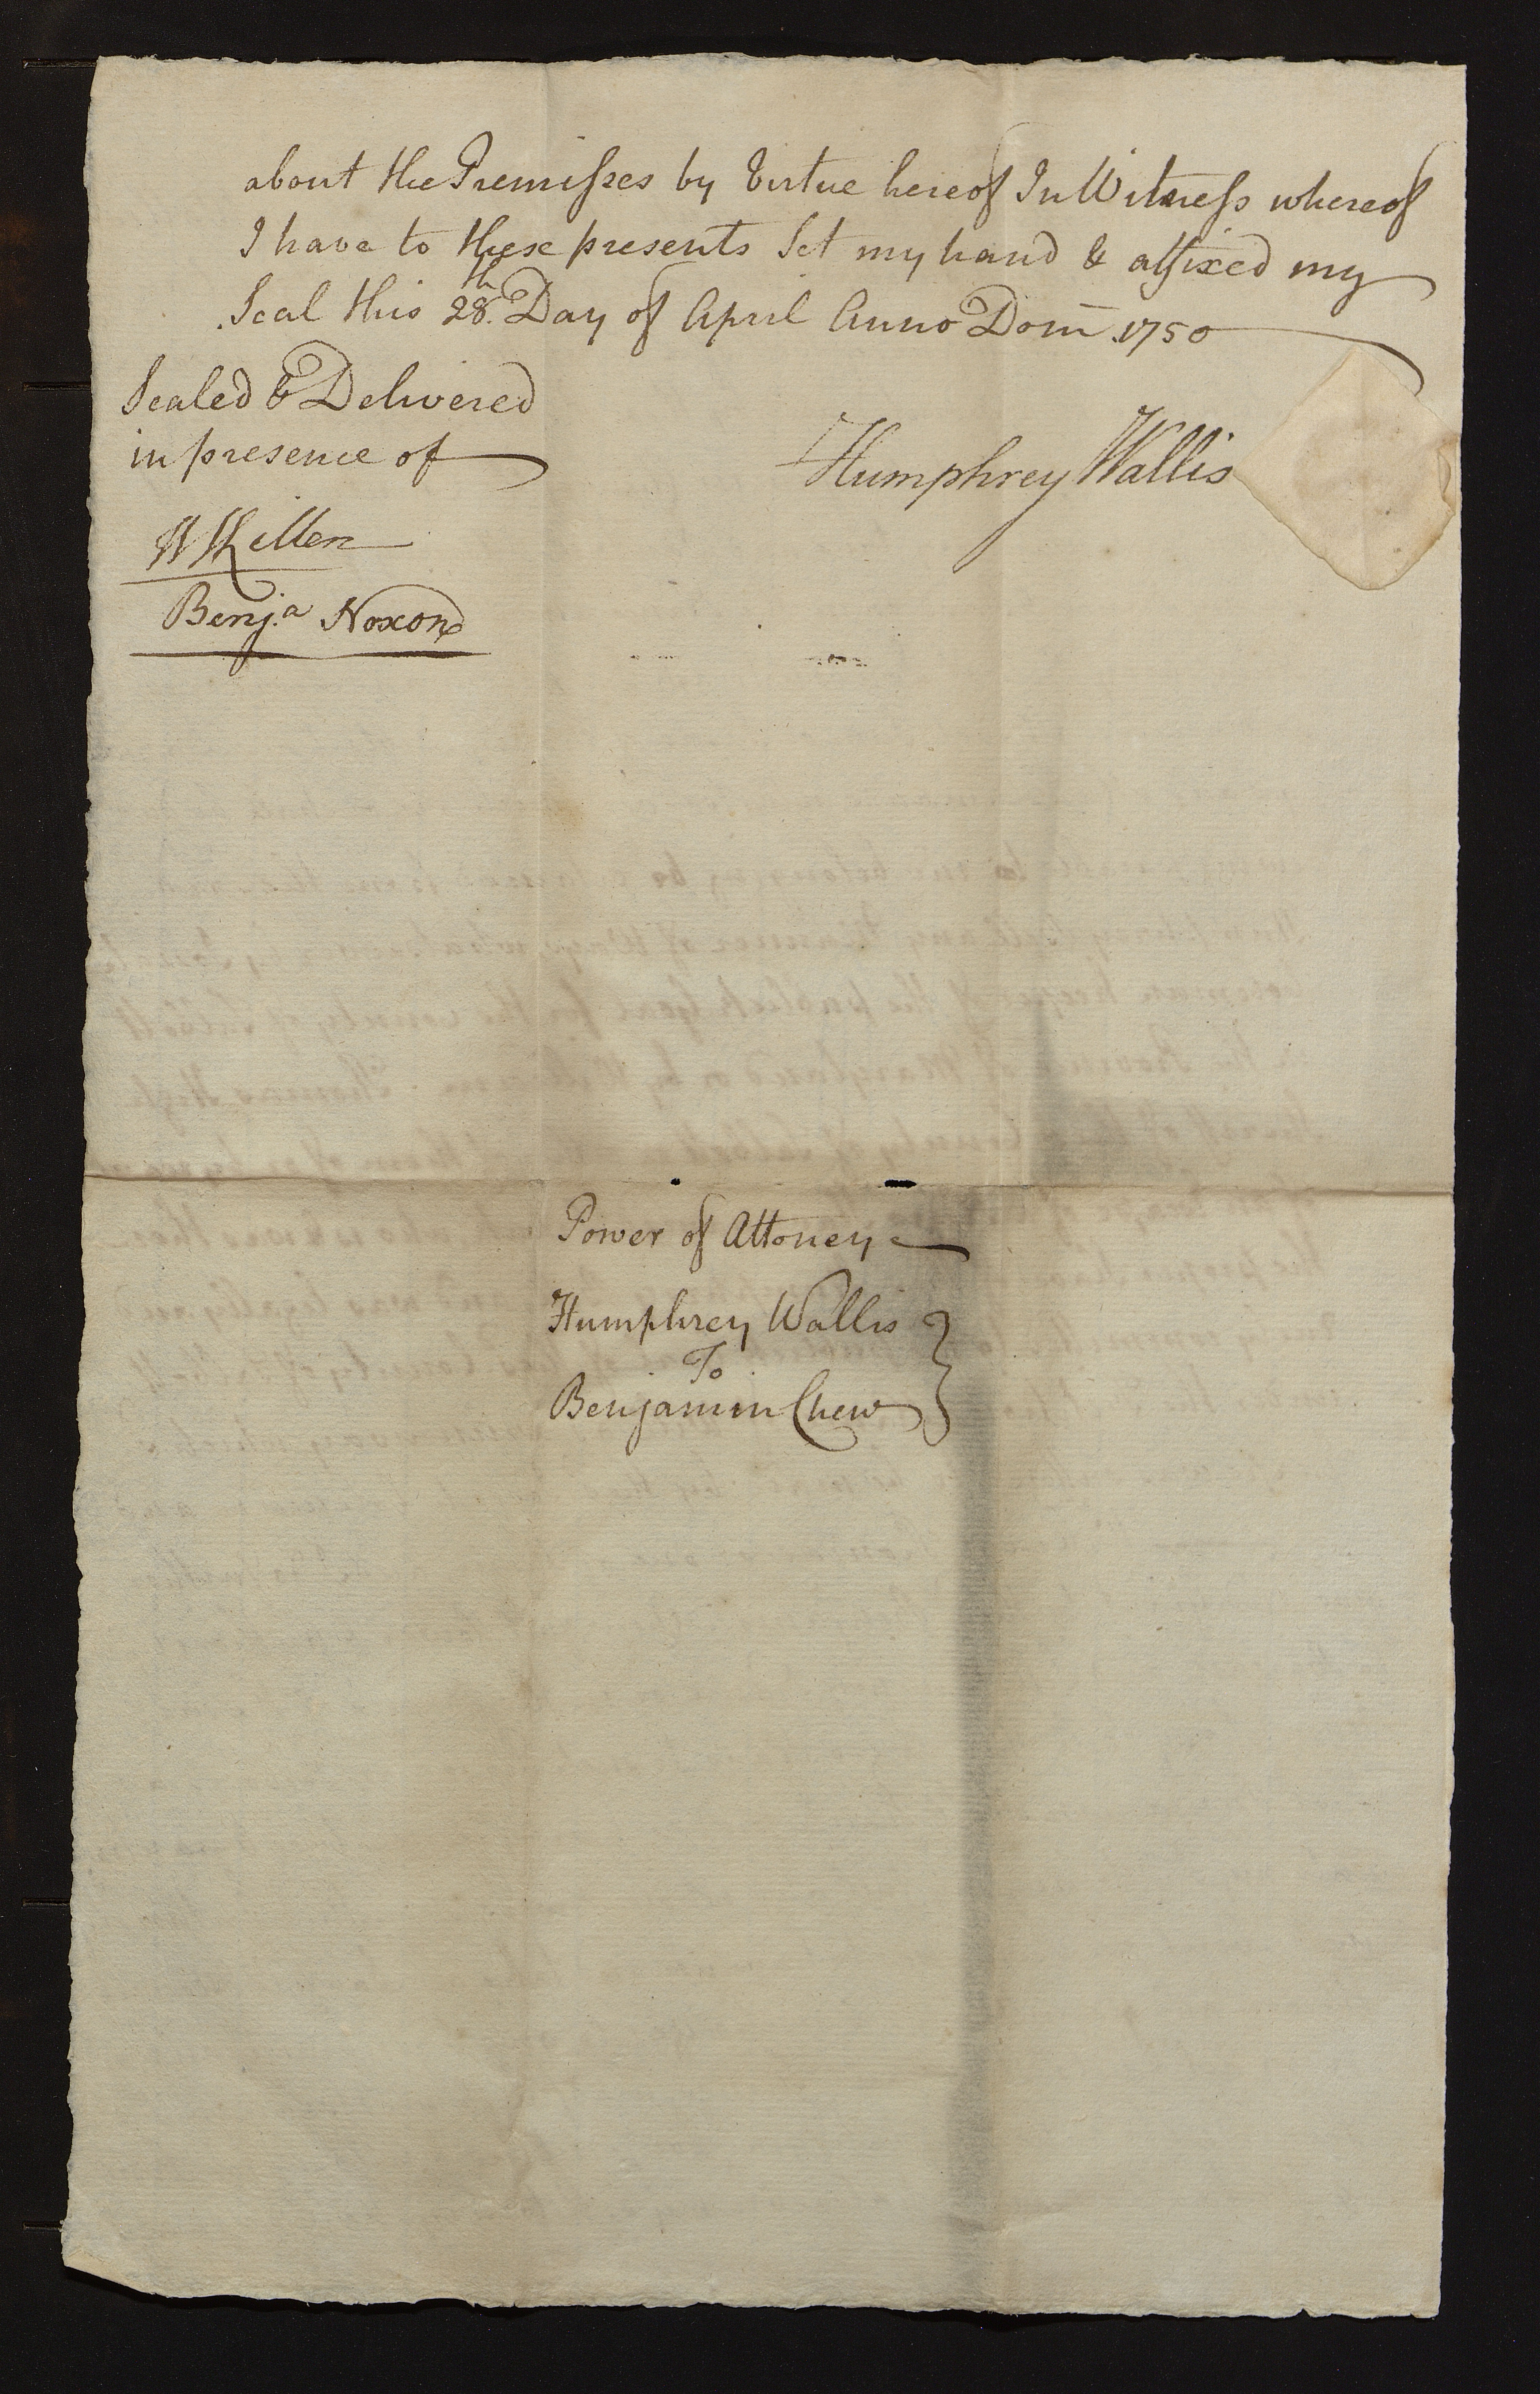 about the Premisses by Virtue hereof In Witness whereof
I have to these presents Set my hand & affixed my
Seal this 28th. Day of April Anno Dom̄ 1750
Sealed & Delivered
in presence of
Humphrey Wallis
W Killen
Benj.a Noxon
Power of Attorney
Humphrey Wallis
To
Benjamin Chew